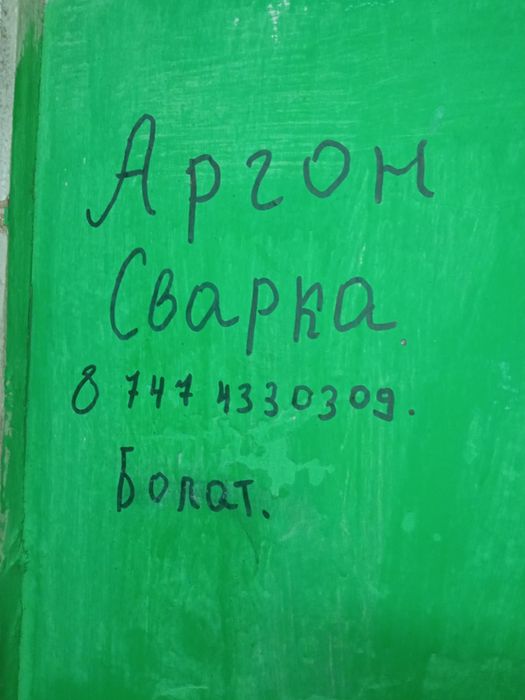 Аргон
Сварка
8 747 4330309.
Болат.